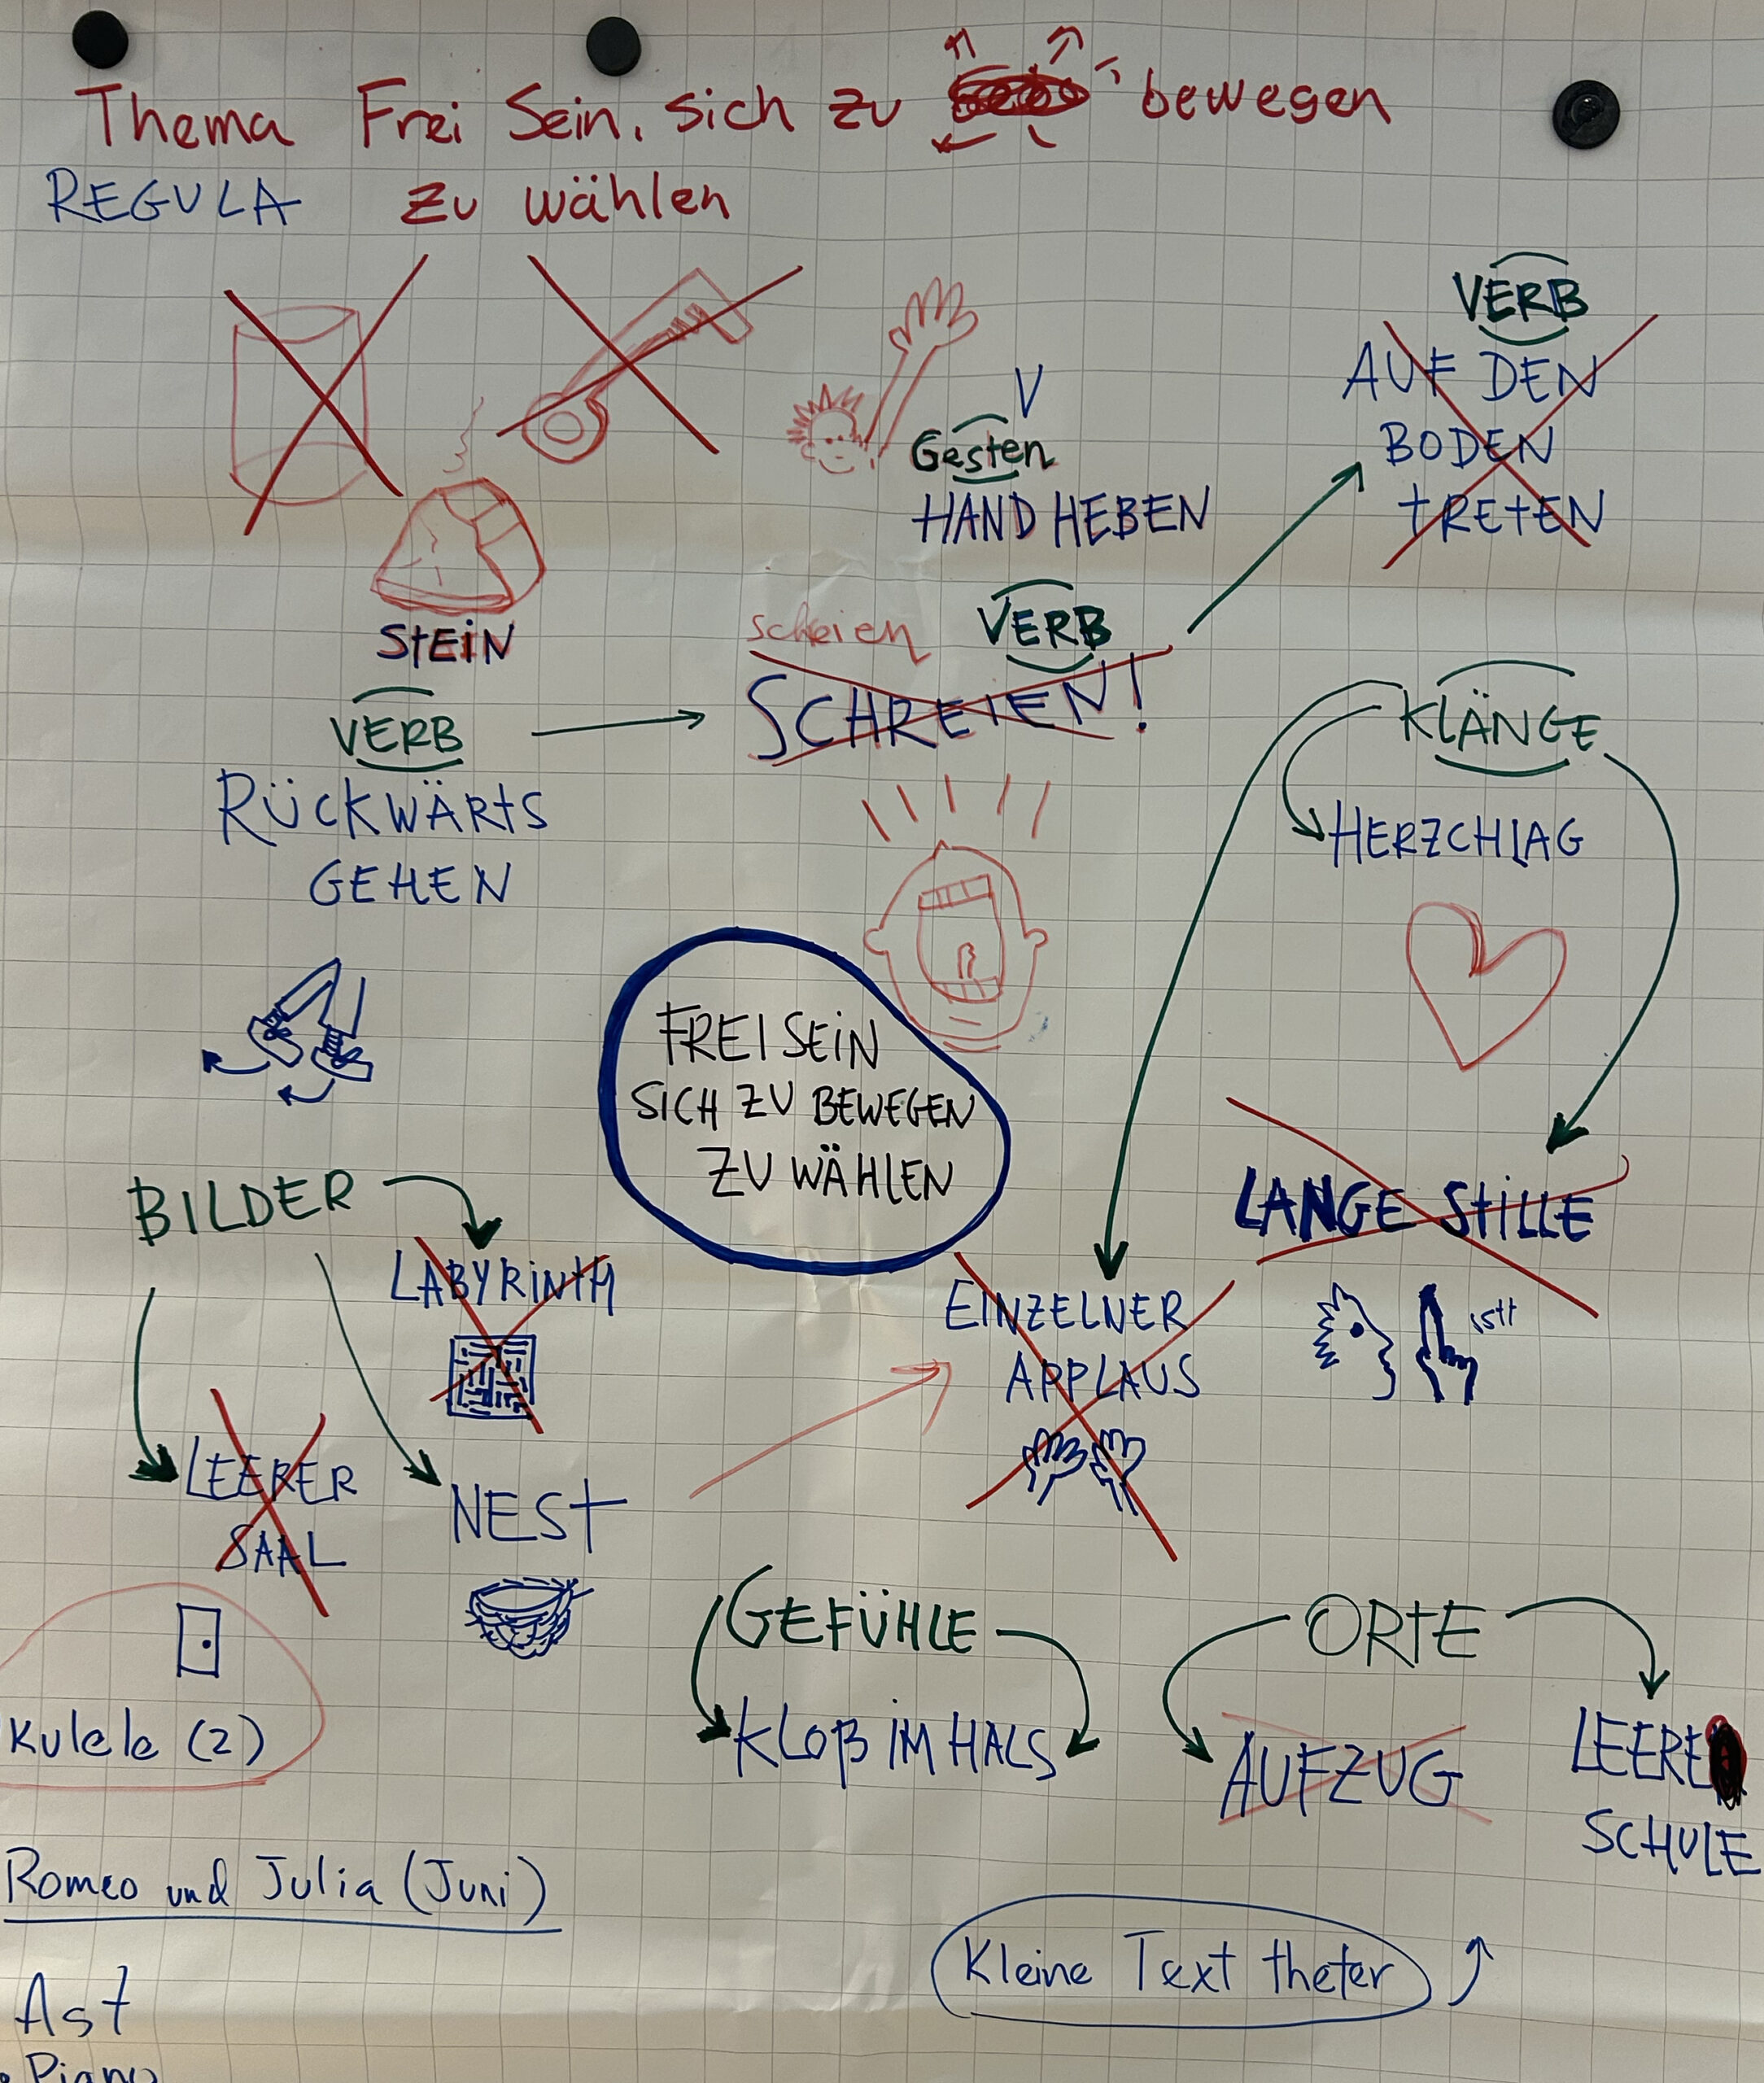 Thema Frei Sein, sich zu bewegen
REGULA zu wählen
VERB
AUF DEN
BODEN
TRETEN
V
Gesten
HAND HEBEN
STEIN
scheien VERB
SCHREIEN!
VERB
RÜCKWÄRTS
GEHEN
KLÄNGE
HERZCHLAG
FREI SEIN
SICH ZU BEWEGEN
ZU WÄHLEN
BILDER
LABYRINTH
LEERER
SAAL
NEST
EINZELNER
APPLAUS
LANGE STILLE
GEFÜHLE
KLOß IM HALS
ORTE
AUFZUG
LEERE
SCHULE
Kulele (2)
Romeo und Julia (Juni)
Kleine Text theter
Ast
Piano